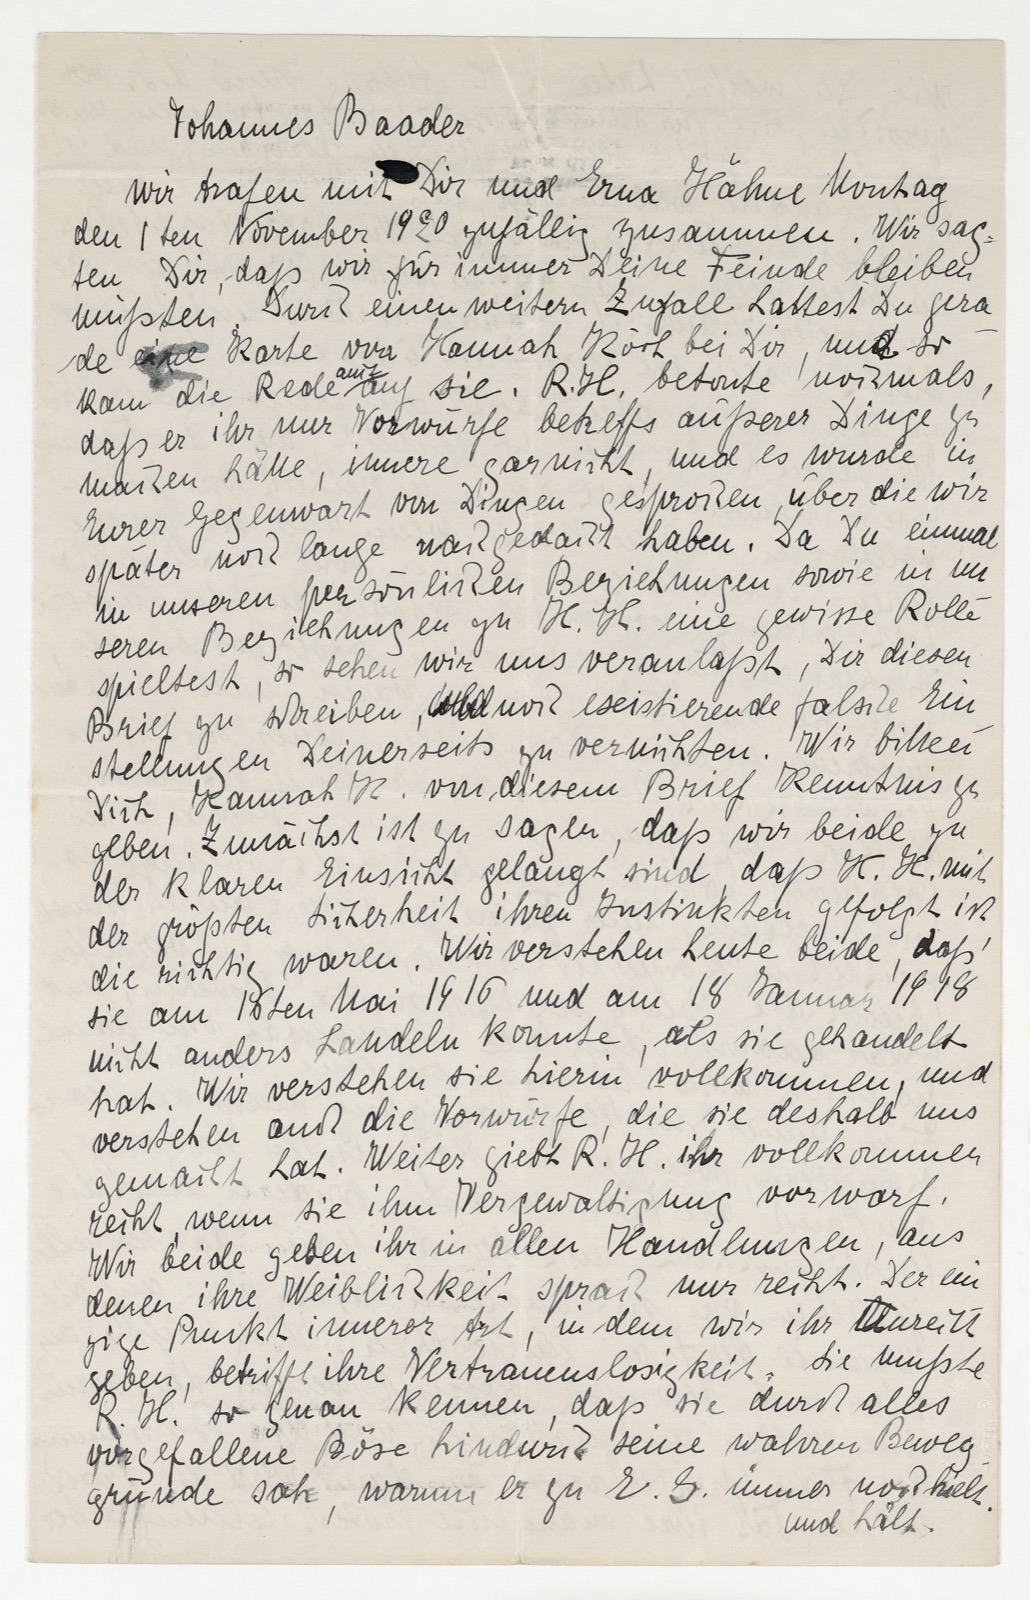 Johannes Baader
Wir trafen mit Dir und Erna Hähne Montag
den 1 ten November 1920 zufällig zusammen. Wir sag-
ten Dir, daß wir für immer Deine Feinde bleiben
müßten. Durch einen weitern Zufall hattest Du gera
de eine Karte von Hannah Höch bei Dir, und so
kam die Rede auf sie. R.H. betonte nochmals,
daß er ihr nur Vorwürfe betreffs äußerer Dinge zu
machen hätte, innere garnicht, und es wurde in
Eurer Gegenwart von Dingen gesprochen, über die wir
später noch lange nachgedacht haben. Da Du einmal
in unseren persönlichen Beziehungen sowie in un
seren Beziehungen zu H. H. eine gewisse Rolle
spieltest, so sehen wir uns veranlaßt, Dir diesen
Brief zu schreiben, und noch existierende falsche Ein
stellungen Deinerseits zu vernichten. Wir bitten
Dich, Hannah H. von diesem Brief Kenntnis zu
geben. Zunächst ist zu sagen, daß wir beide zu
der klaren Einsicht gelangt sind, daß H. H. mit
der größten Sicherheit ihren Instinkten gefolgt ist
die richtig waren. Wir verstehen heute beide, daß
sie am 18ten Mai 1916 und am 18 Januar 1918
nicht anders handeln konnte, als sie gehandelt
hat. Wir verstehen sie hierin vollkommen, und
verstehen auch die Vorwürfe, die sie deshalb uns
gemacht hat. Weiter giebt R. H. ihr vollkommen
recht, wenn sie ihm Vergewaltigung vorwarf.
Wir beide geben ihr in allen Handlungen, aus
denen ihre Weiblichkeit sprach nur recht. Der ein
zige Punkt innerer Art, in dem wir ihr Unrecht
geben, betrifft ihre Vertrauenslosigkeit. Sie mußte
R. H. so genau kennen, daß sie durch alles
vorgefallene Böse hindurch seine wahren Beweg
gründe sah, warum er zu E. H. immer noch hielt.
und hält.